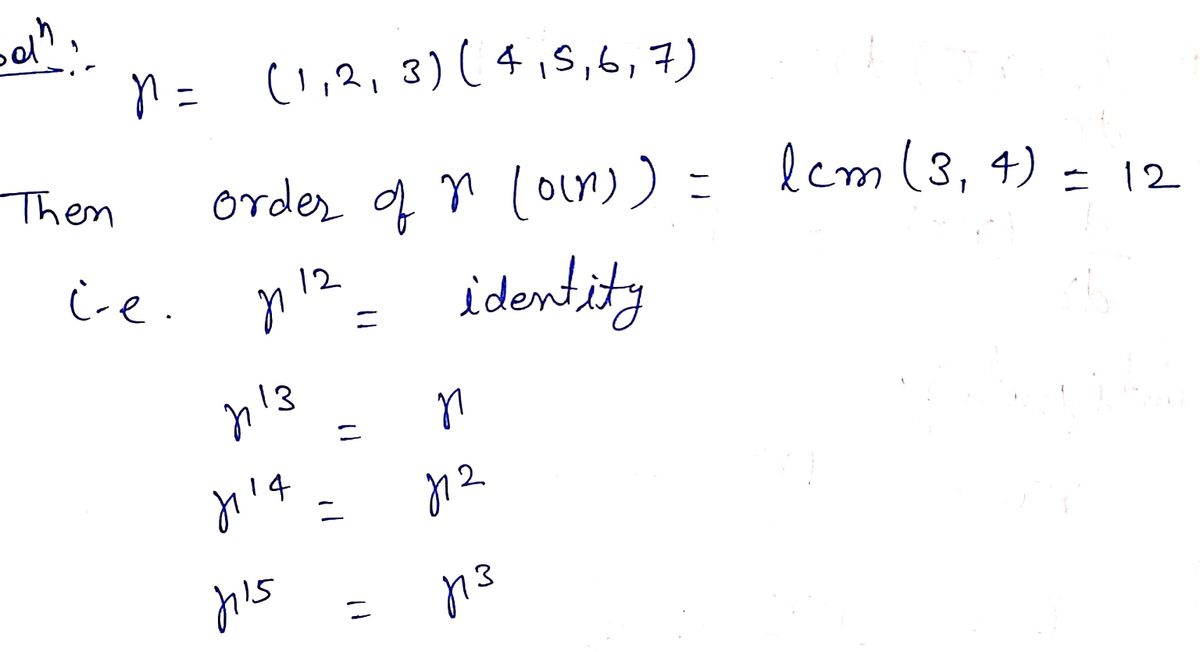 Solⁿ :-
η = (1, 2, 3) ( 4, 5, 6, 7)
Then order of η (o(η)) = lcm (3, 4) = 12
i-e. η¹² = identity
η¹³ = η
η¹⁴ = η²
η¹⁵ = η³